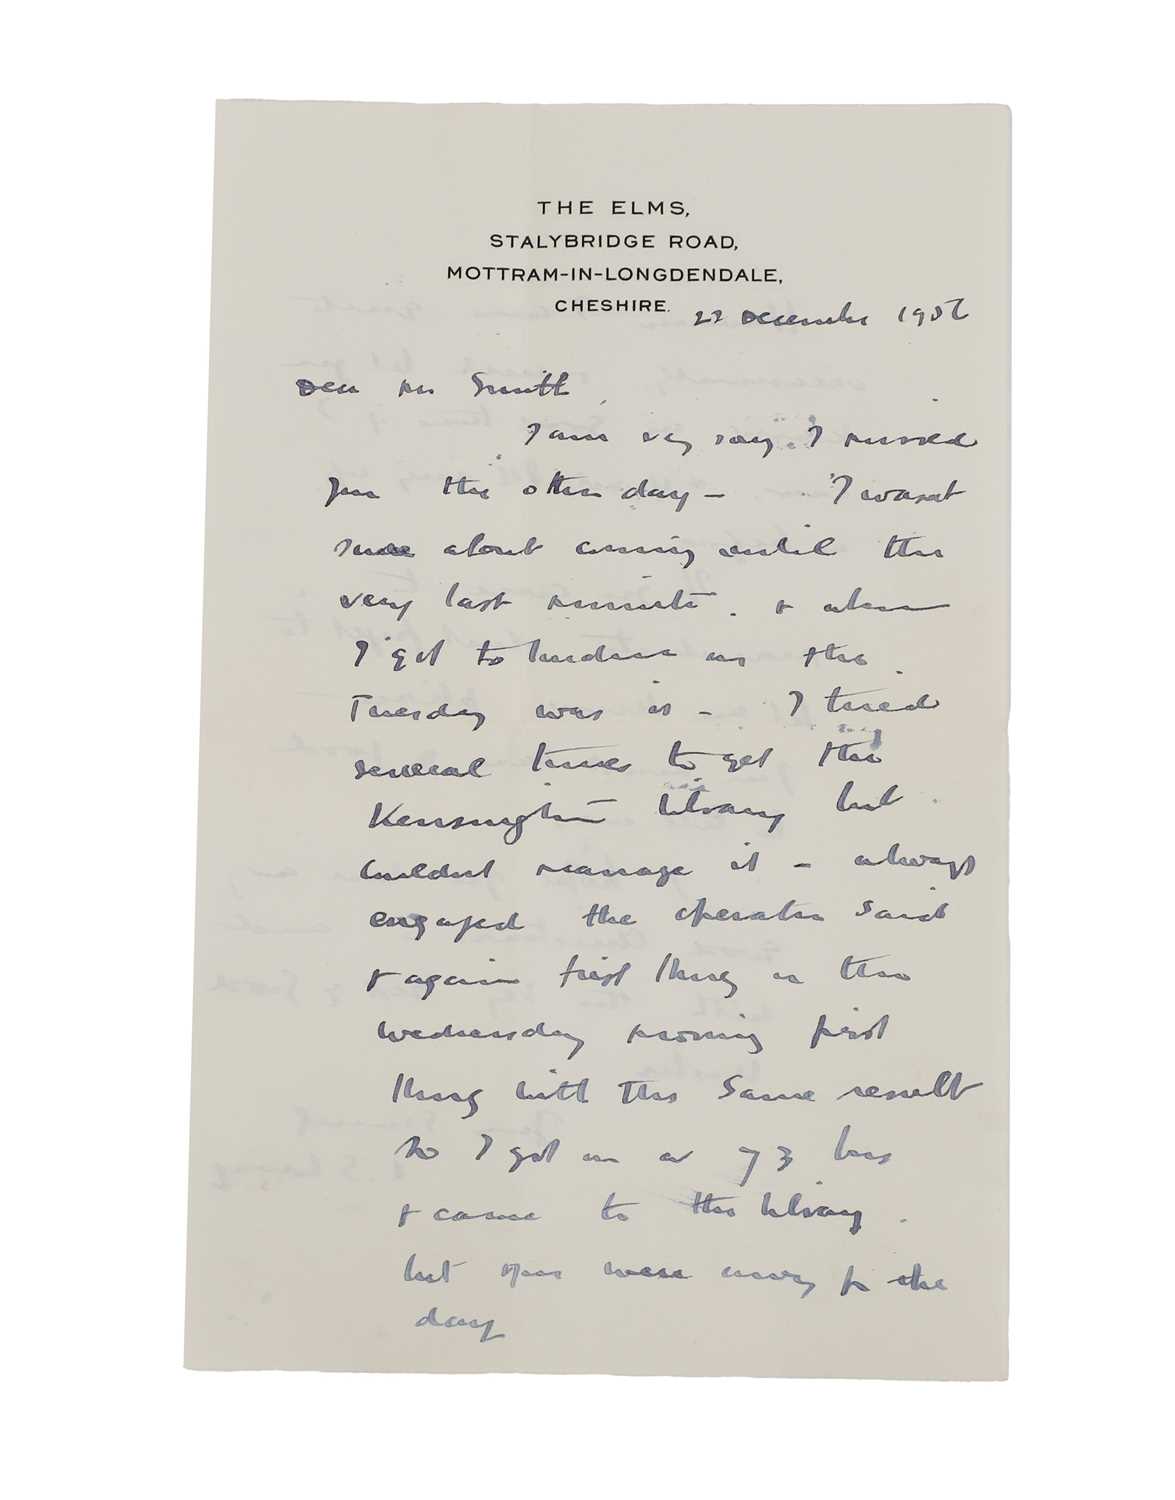 THE ELMS,
STALYBRIDGE ROAD,
MOTTRAM-IN-LONGDENDALE,
CHESHIRE.
22 December 1956
Dear Mr Smith,
I am very sorry I missed
you the other day – I wasnt
sure about coming until the
very last minute. & when
I got to London on the
Tuesday was it – I tried
several times to get the
Kensington library but
couldnt manage it – always
engaged the operator said
& again first thing on the
Wednesday morning first
thing with the same result
so I got on a 73 bus
& came to the library.
but you were away for the
day